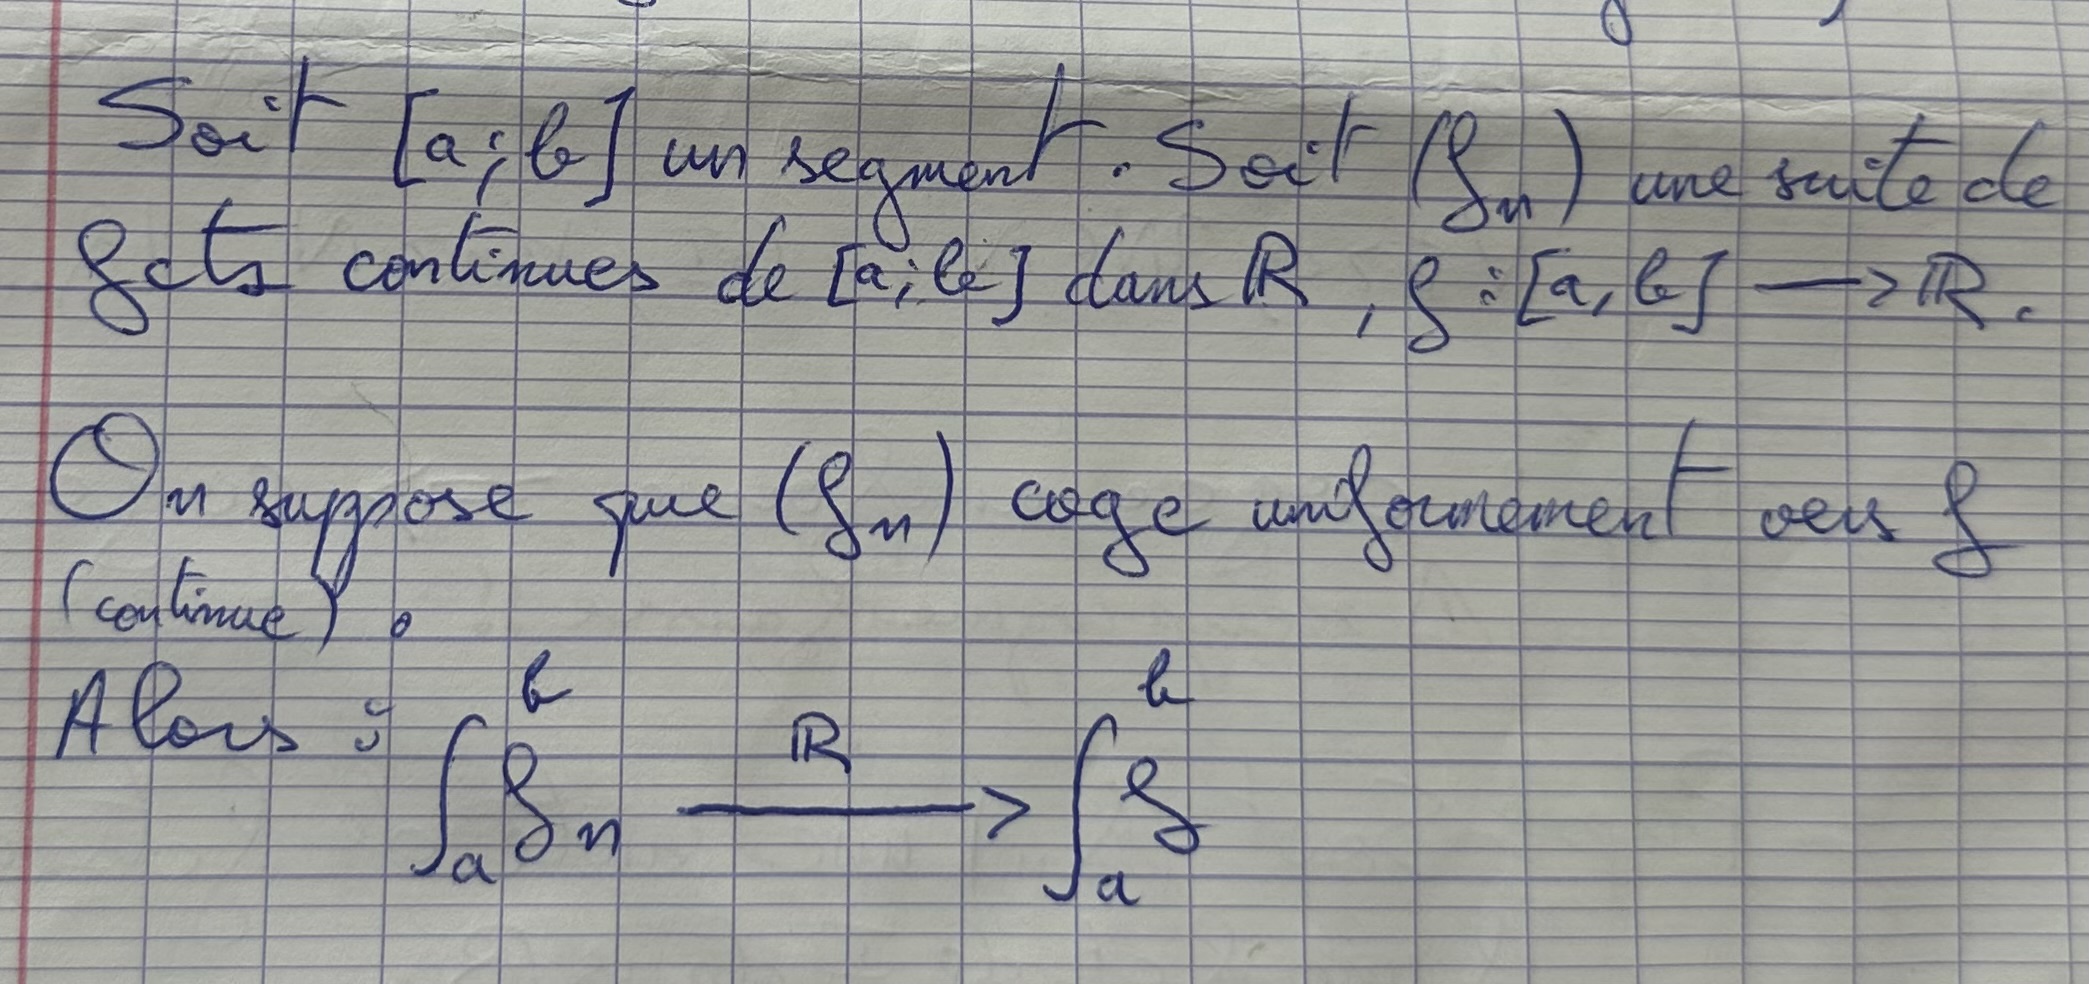 Soit [a;b] un segment. Soit (fn) une suite de
fcts continues de [a;b] dans ℝ, f : [a,b] ⟶ ℝ.
On suppose que (fn) cvge uniformément vers f
(continue).
Alors : ∫_a^b fn ⟶^ℝ ∫_a^b f